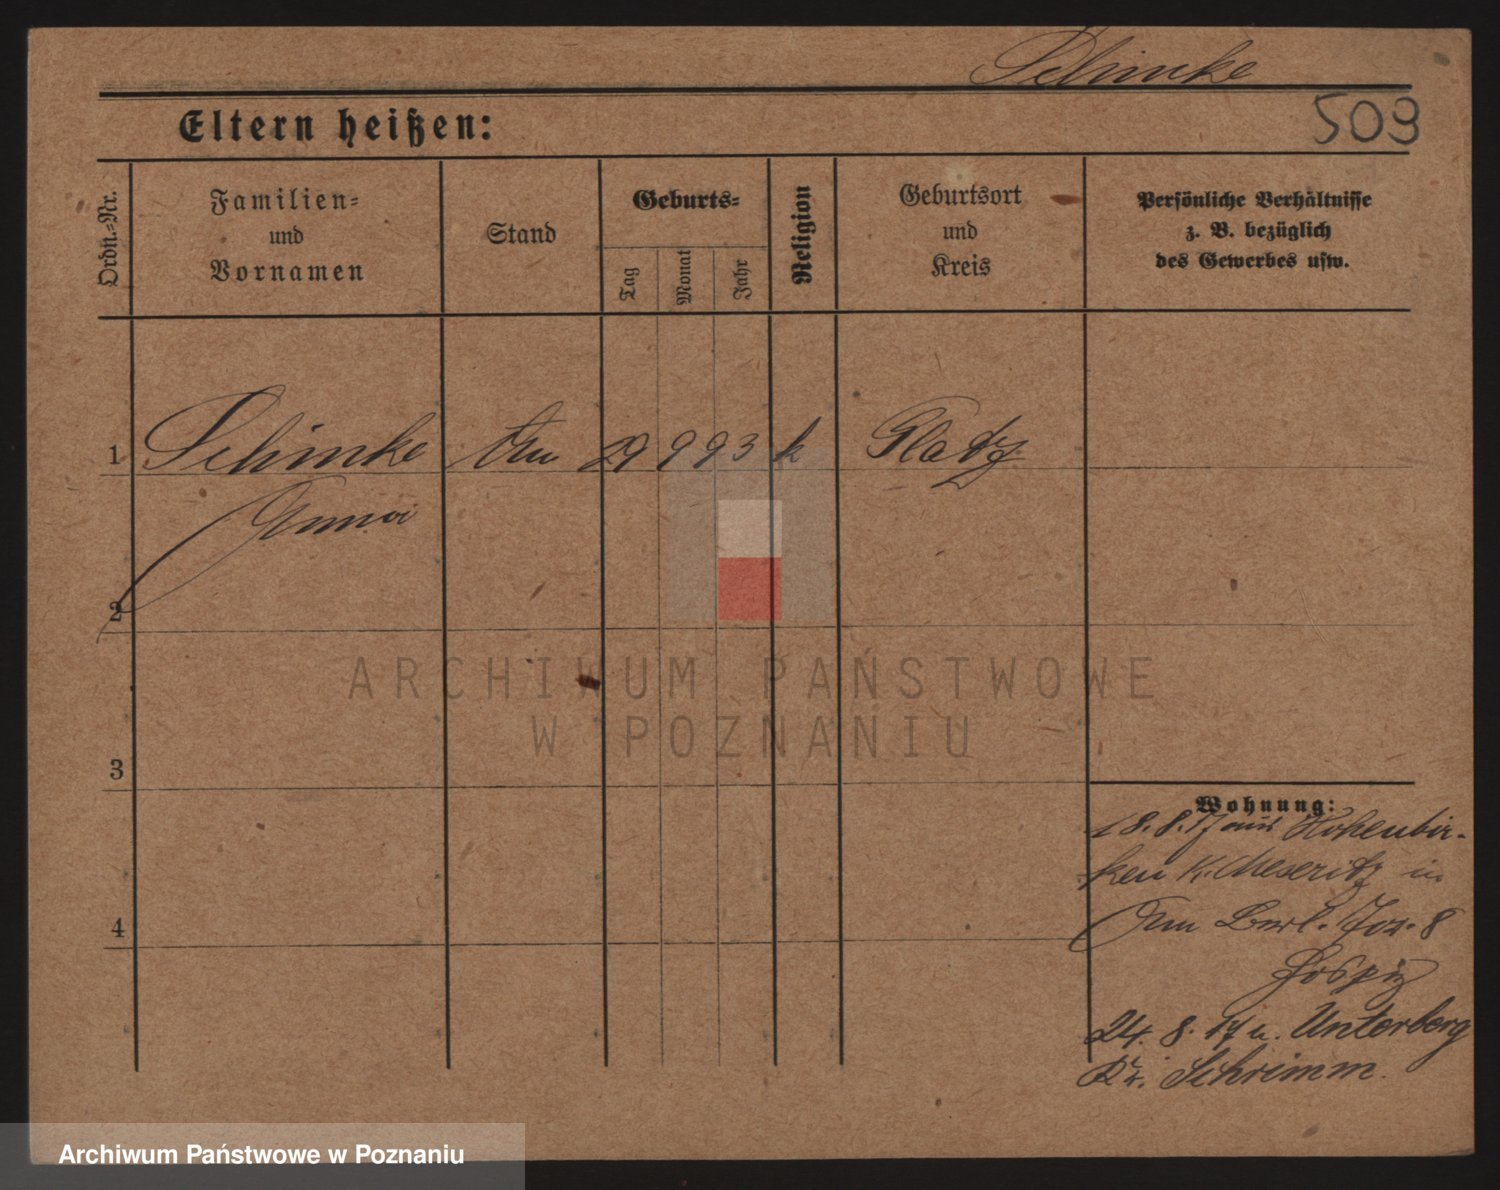 Schinke
503
Eltern heißen:
Ordn.-Nr.
Familien-
und
Vornamen
Stand
Geburts-
Tag
Monat
Jahr
Religion
Geburtsort
und
Kreis
Persönliche Verhältnisse
z. B. bezüglich
des Gewerbes usw.
1 Schinke 29 9 93 k Glatz
Anna
2
ARCHIWUM PAŃSTWOWE
W POZNANIU
3
Wohnung:
18.8.17 aus Hohenbir-
ken K. Meseritz in
Berl. 8
4
Hospiz
24. 8. 17 n. Unterberg
Kr. Schrimm.
Archiwum Państwowe w Poznaniu